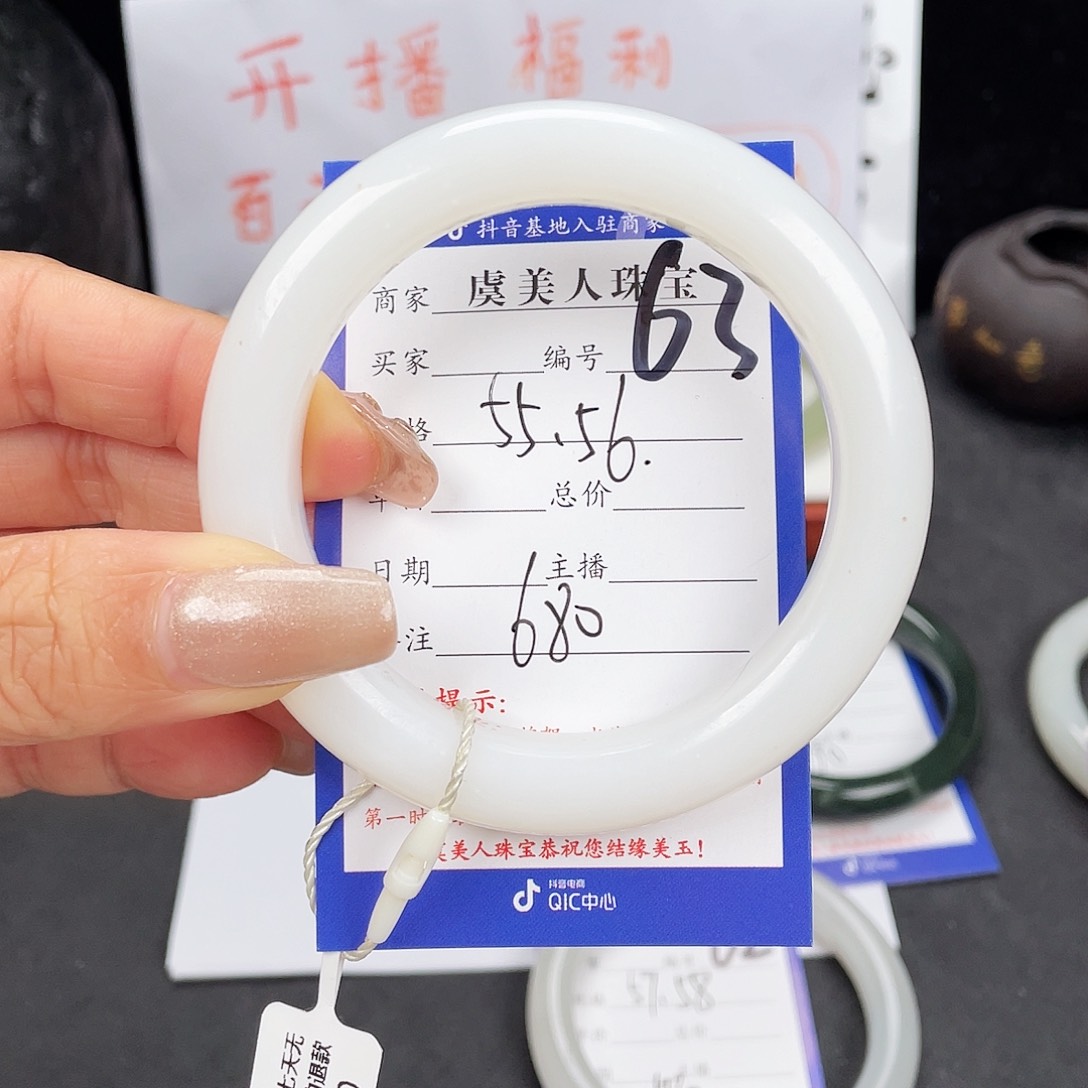 开播福利
百
抖音基地入驻商家
商家 虞美人珠宝
买家 编号 63
格 55.56.
总价
日期 主播
注 680
提示:
第一时
美人珠宝恭祝您结缘美玉!
抖音电商
QIC中心
七天无
退款
57.58